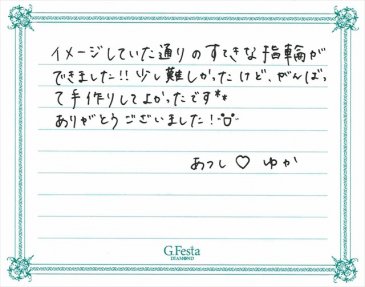 イメージしていた通りのすてきな指輪が
できました!!少し難しかったけど、がんばっ
て手作りしてよかったです**
ありがとうございました!
あつし♡ゆか
G.Festa
DIAMOND